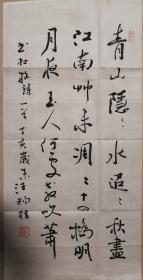 青山隱〻水迢〻秋盡
江南艸未凋二十四橋明
月夜玉人何處教吹簫
書杜牧詩一首丁亥歲末汪